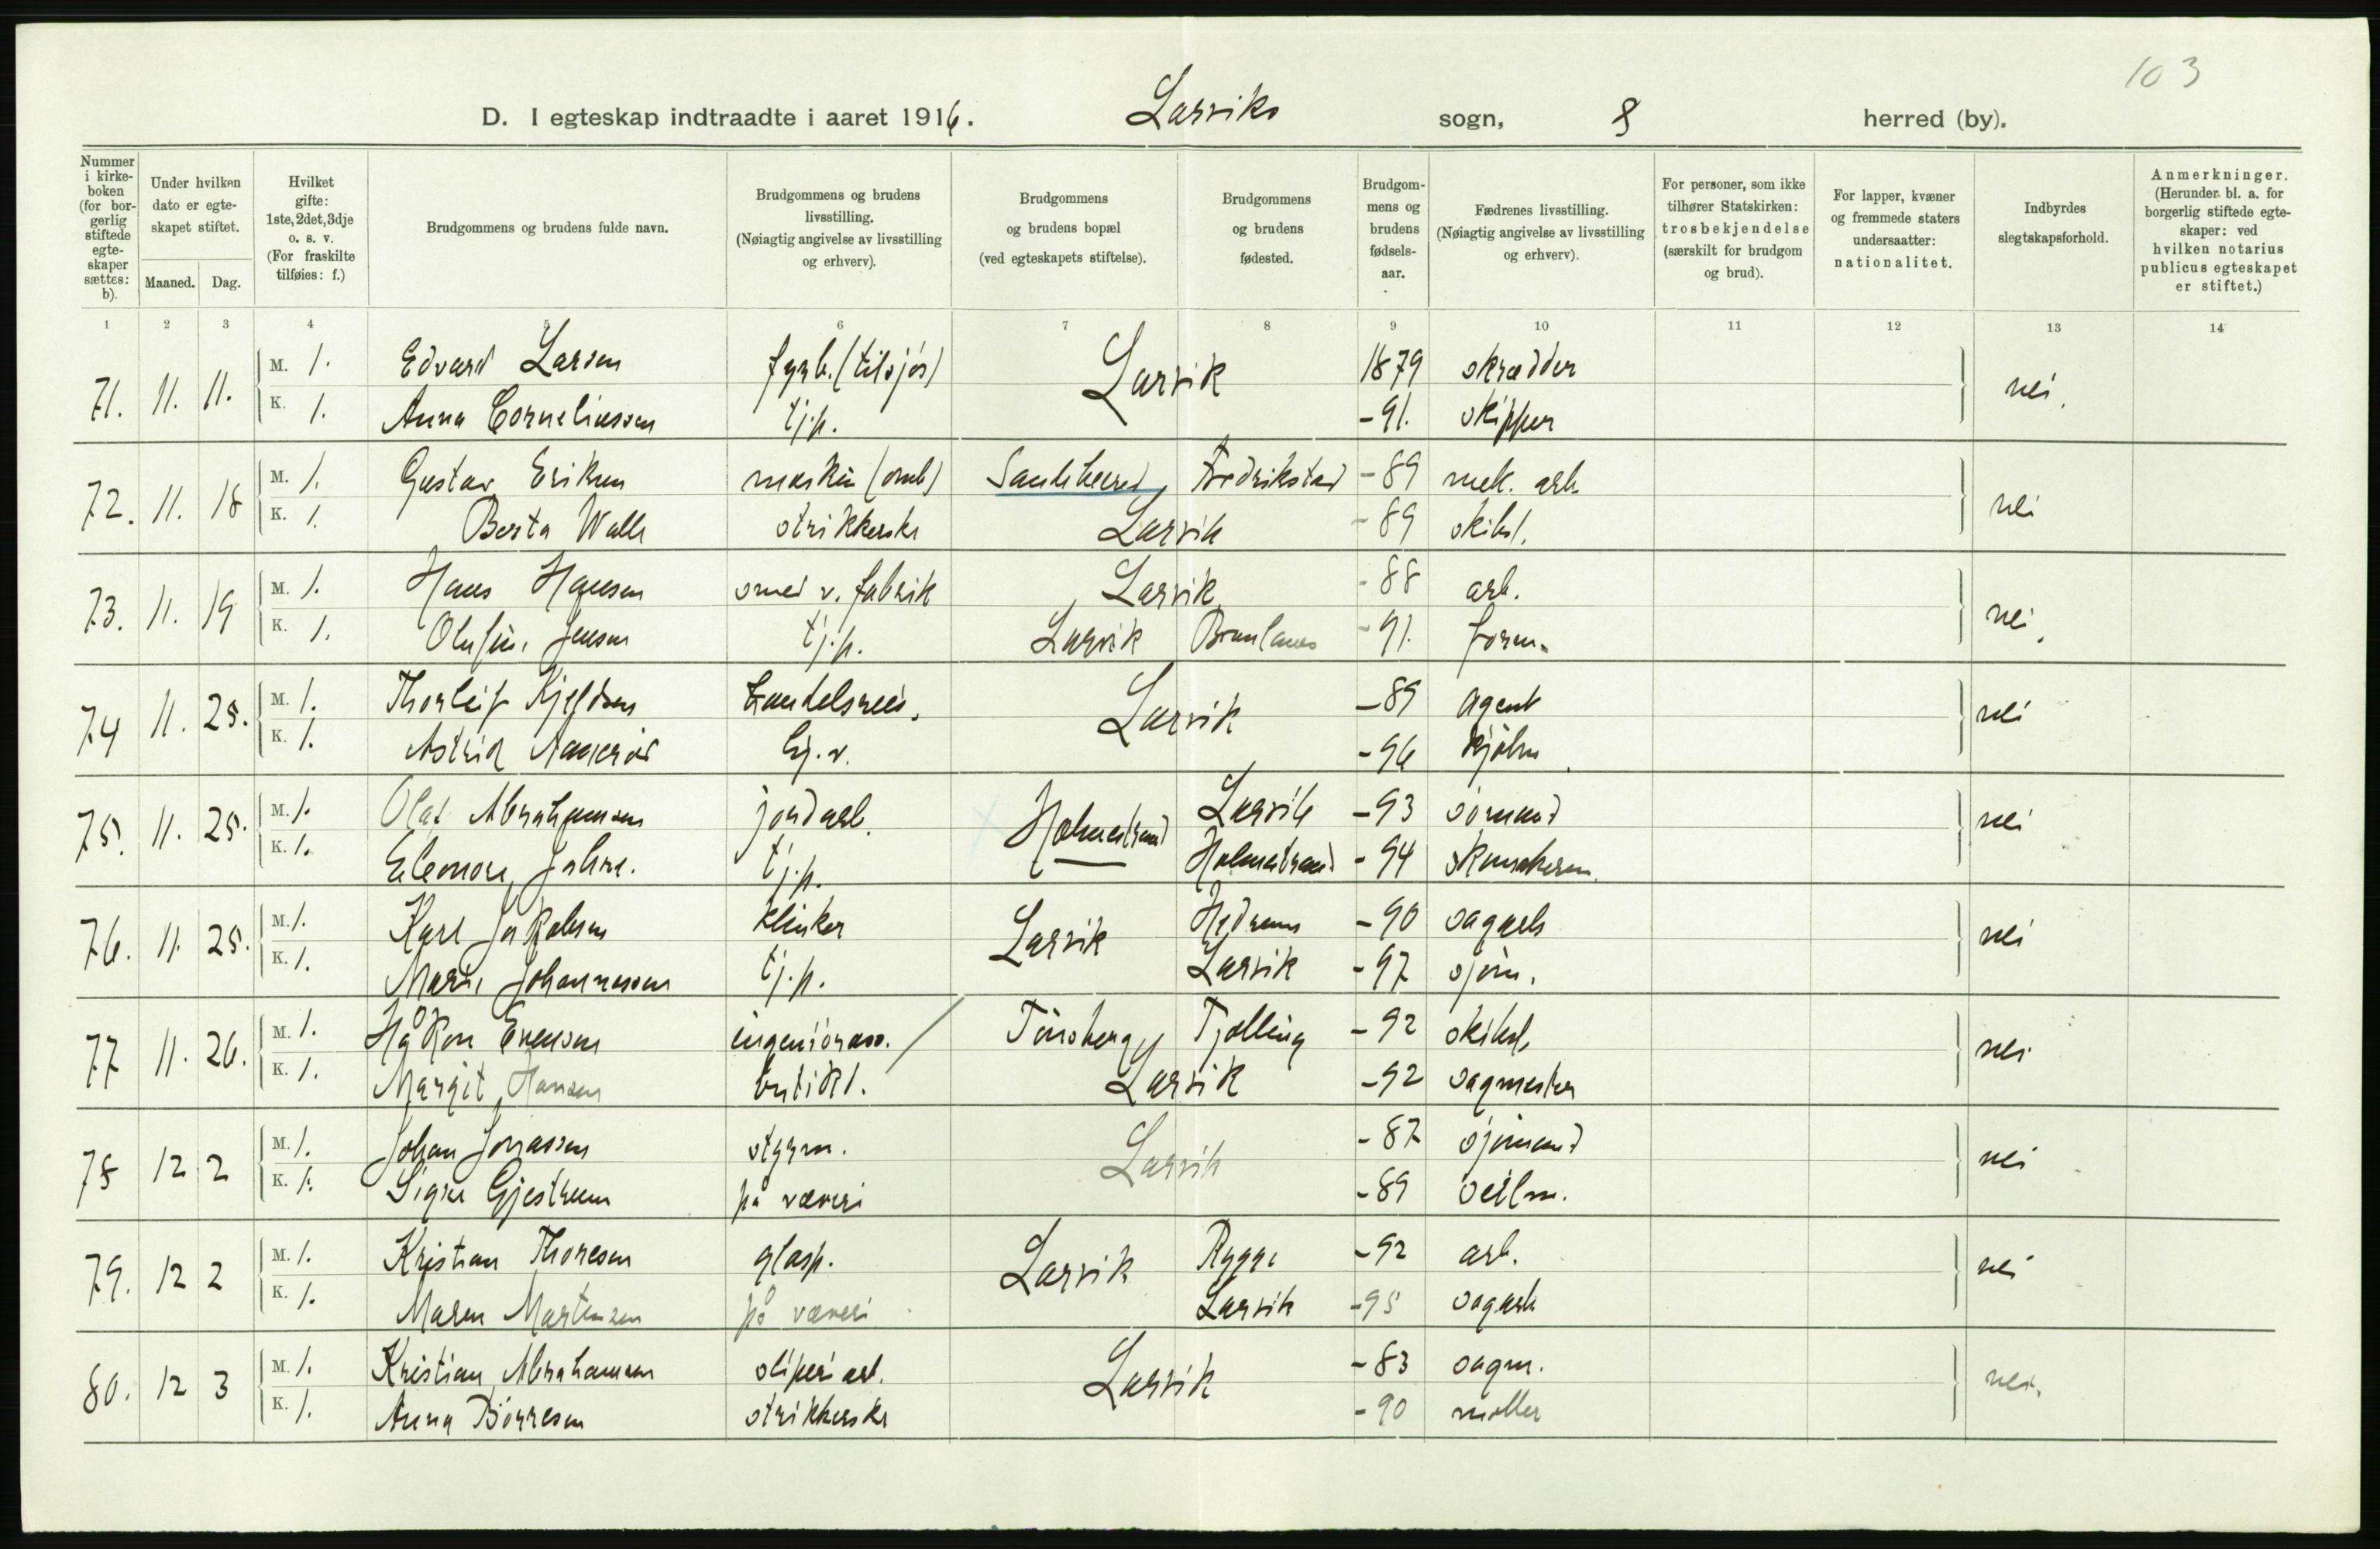 103
D. I egteskap indtraadte i aaret 1916. Larviks sogn, 8 herred (by).
Nummer i kirkeboken (for borgerlig stiftede egteskaper sættes: b).
Under hvilken dato er egteskapet stiftet.
Maaned. Dag.
Hvilket gifte: 1ste, 2det, 3dje o. s. v. (For fraskilte tilføies: f.)
Brudgommens og brudens fulde navn.
Brudgommens og brudens livsstilling. (Nøiagtig angivelse av livsstilling og erhverv).
Brudgommens og brudens bopæl (ved egteskapets stiftelse).
Brudgommens og brudens fødested.
Brudgommens og brudens fødselsaar.
Fædrenes livsstilling. (Nøiagtig angivelse av livsstilling og erhverv).
For personer, som ikke tilhører Statskirken: trosbekjendelse (særskilt for brudgom og brud).
For lapper, kvæner og fremmede staters undersaatter: nationalitet.
Indbyrdes slegtskapsforhold.
Anmerkninger. (Herunder bl. a. for borgerlig stiftede egteskaper: ved hvilken notarius publicus egteskapet er stiftet.)
1 2 3 4 5 6 7 8 9 10 11 12 13 14
71. 11. 11. M. 1. Edvard Larsen fyrb. (tilsjøs) Larvik 1879 skrædder nei.
K. 1. Anna Corneliussen tj.p. -91. skipper
72. 11. 18 M. 1. Gustav Eriksen maskin (omb) Sandeherred Fredrikstad -89 mek. arb. nei
K. 1. Berta Walle strikkerske Larvik -89 skibst.
73. 11. 19 M. 1. Hans Hansen smed v. fabrik Larvik -88 arb. nei.
K. 1. Olufine Jensen tj.p. Larvik Brunlanes -91. form.
74 11. 25. M. 1. Thorleif Kjeldsen handelsreis. Larvik -89 agent nei
K. 1. Astrid hj.v. -96
75. 11. 25. M. 1. Olaf Abrahamsen jordarb. Holmestrand Larvik -93 sømand nei
K. 1. Eleonore Johns. tj.p. Holmestrand -94 skomakerm.
76. 11. 25. M. 1. Karl Jakobsen klinker Larvik Hedrum -90 sagarb nei
K. 1. Marie Johannessen tj.p. Larvik -97 sjøm.
77 11. 26. M. 1. Håkon Evensen ingeniørass. Tønsberg Tjølling -92 skibst. nei
K. 1. Margit Hansen butikt. Larvik -92 sagmester
78 12 2 M. 1. Johan Jonassen styrm. Larvik -87 sjømand nei
K. 1. Signe Gjestrum på væveri -89 seilm.
79. 12 2 M. 1. Kristian Thoresen glasp. Larvik Rygge -92 arb. nei
K. 1. Maren Martinsen på væveri Larvik -95 sagarb
80. 12 3 M. 1. Kristian Abrahamsen sliperiarb. Larvik -83 sagm. nei.
K. 1. Anna Børresen strikkerske -90 møller